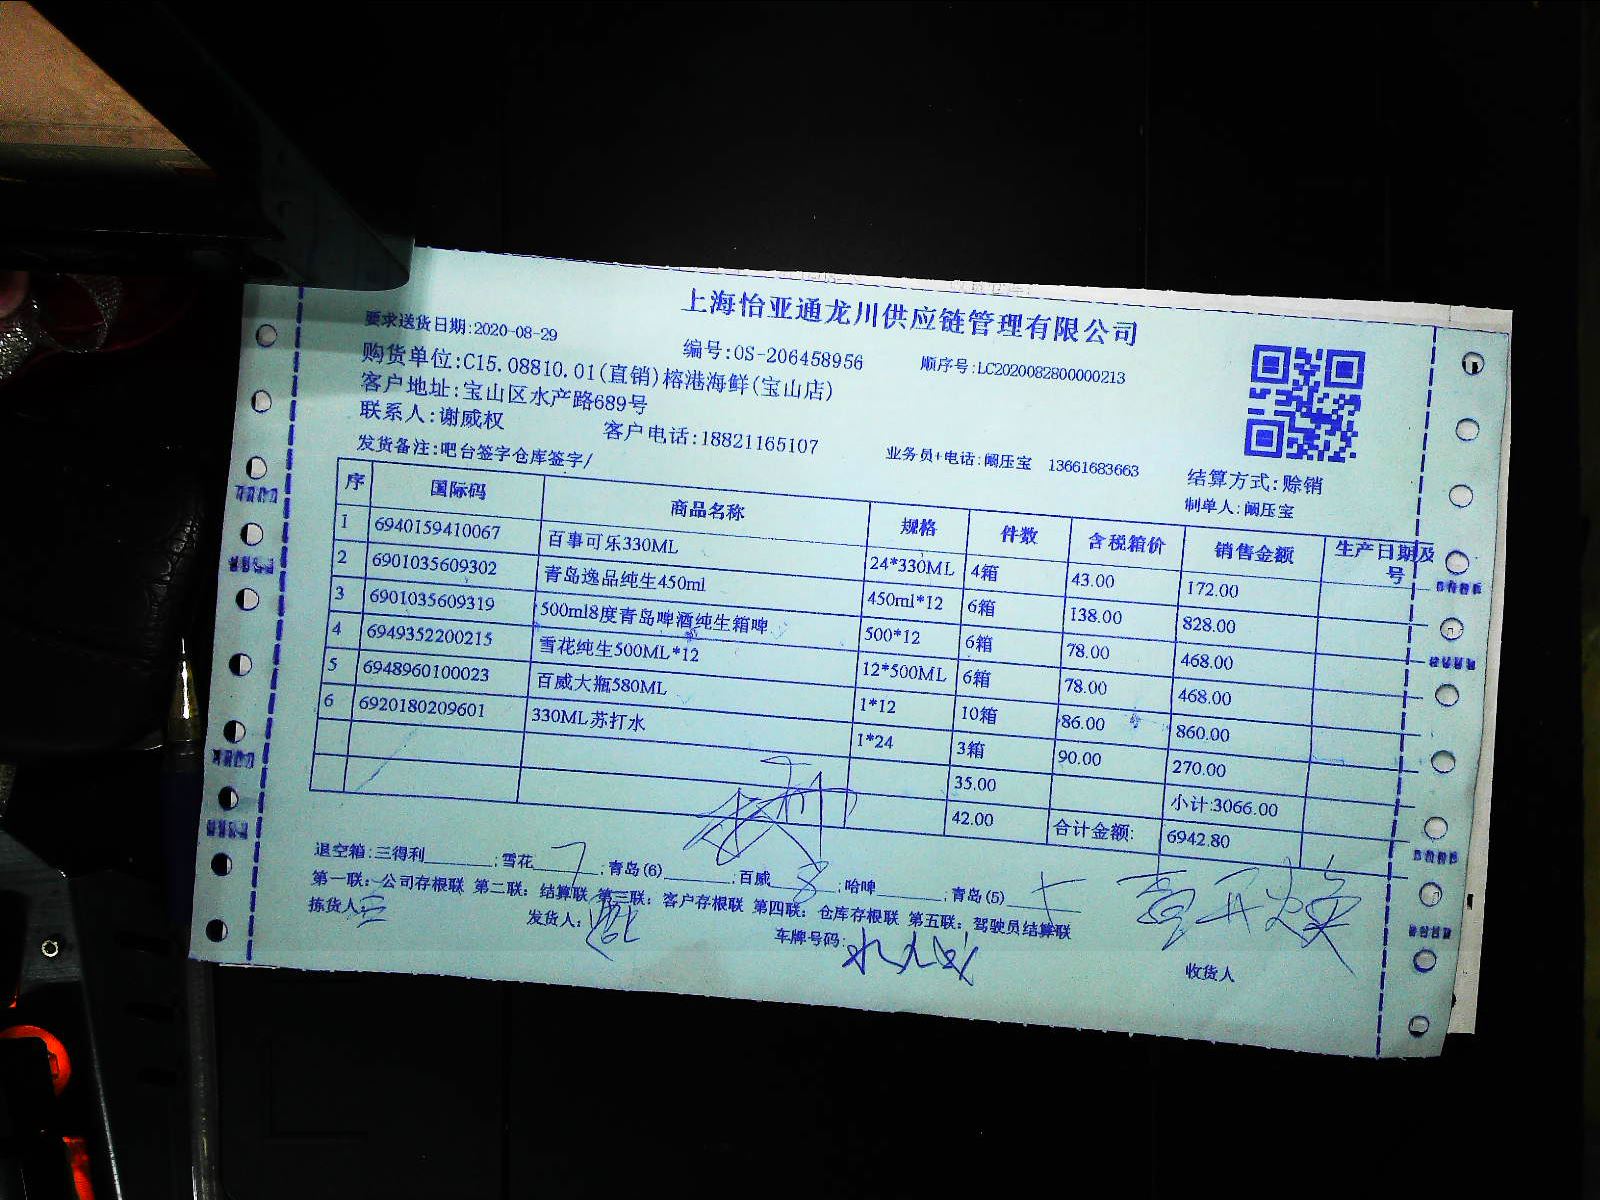 上海怡亚通龙川供应链管理有限公司
要求送货日期:2020-08-29 编号:OS-206458956 顺序号:LC2020082800000213
购货单位:C15.08810.01(直销)榕港海鲜(宝山店)
客户地址:宝山区水产路689号
联系人:谢威权 客户电话:18821165107 业务员+电话:阚压宝 13661683663 结算方式:赊销
发货备注:吧台签字仓库签字/ 制单人:阚压宝
序 国际码 商品名称 规格 件数 含税箱价 销售金额 生产日期及
号
1 6940159410067 百事可乐330ML 24*330ML 4箱 43.00 172.00
2 6901035609302 青岛逸品纯生450ml 450ml*12 6箱 138.00 828.00
3 6901035609319 500ml8度青岛啤酒纯生箱啤 500*12 6箱 78.00 468.00
4 6949352200215 雪花纯生500ML*12 12*500ML 6箱 78.00 468.00
5 6948960100023 百威大瓶580ML 1*12 10箱 86.00 860.00
6 6920180209601 330ML苏打水 1*24 3箱 90.00 270.00
35.00 小计:3066.00
42.00 合计金额: 6942.80
退空箱:三得利______;雪花 7 ;青岛(6)______;百威 8 ;哈啤______;青岛(5) 七
第一联: 公司存根联 第二联: 结算联 第三联: 客户存根联 第四联: 仓库存根联 第五联: 驾驶员结算联
拣货人: 发货人: 车牌号码: 收货人